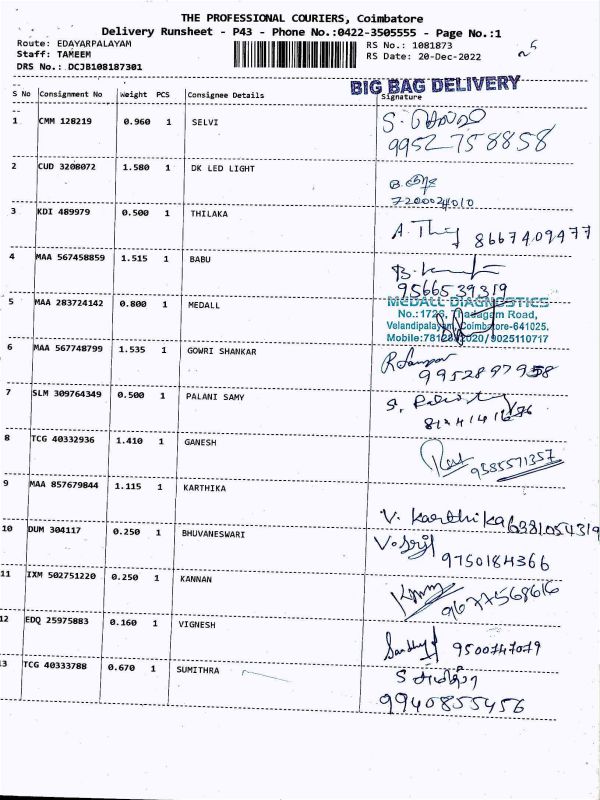 THE PROFESSIONAL COURIERS, Coimbatore
Delivery Runsheet - P43 - Phone No.:0422-3505555 - Page No.:1
Route: EDAYARPALAYAM
Staff: TAMEEM
DRS No.: DCJB108187301
RS No.: 1081873
RS Date: 20-Dec-2022
BIG BAG DELIVERY
S No Consignment No Weight PCS Consignee Details Signature
1 CMM 128219 0.960 1 SELVI
9952758858
2 CUD 3208072 1.580 1 DK LED LIGHT
7200024010
3 KDI 489979 0.500 1 THILAKA A. 8667409477
4 MAA 567458859 1.515 1 BABU
9566539319
5 MAA 283724142 0.800 1 MEDALL
MEDALL DIAGNOSTICS
No.:1726, Thadagam Road,
Velandipalayam, Coimbatore-641025.
Mobile: /9025110717
6 MAA 567748799 1.535 1 GOWRI SHANKAR
7 SLM 309764349 0.500 1 PALANI SAMY
8 TCG 40332936 1.410 1 GANESH 9585571357
9 MAA 857679844 1.115 1 KARTHIKA
V. Karthika 6381054319
10 DUM 304117 0.250 1 BHUVANESWARI
9750184366
11 IXM 502751220 0.250 1 KANNAN
9677568616
12 EDQ 25975883 0.160 1 VIGNESH
9500747079
13 TCG 40333788 0.670 1 SUMITHRA
9940855456